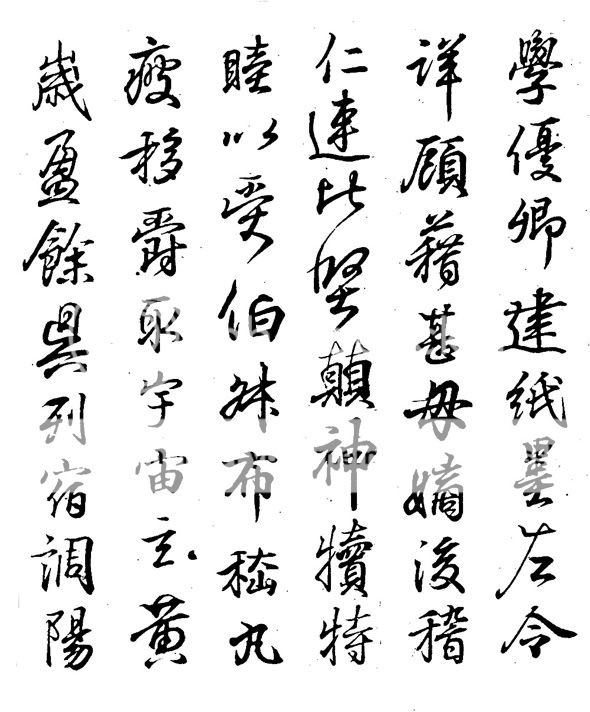 學優卿建紙墨左令
詳顧藉甚毋嫡後稽
仁連比堅顛神犢特
睦以受伯叔布嵇丸
瘦移爵取宇宙玄黃
歲盈餘具列宿調陽